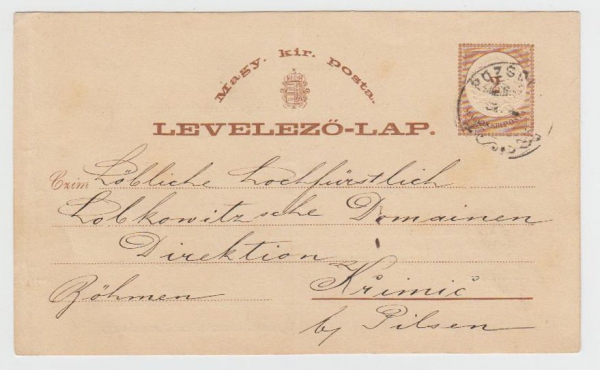 Magy. kir. posta.
LEVELEZŐ-LAP.
POZSO
Czím Löbliche hochfürstlich
Lobkowitz'sche Domainen
Direktion
Böhmen Křimič
by Pilsen